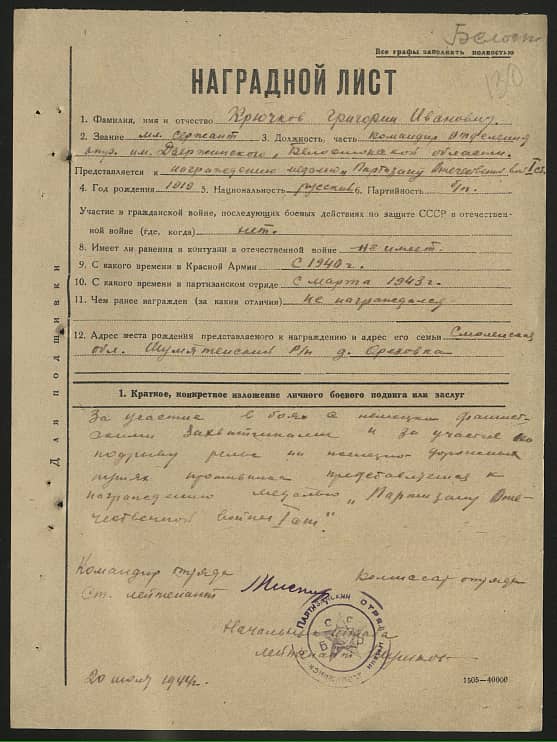 Белост
Все графы заполнять полностью
130
НАГРАДНОЙ ЛИСТ
1. Фамилия, имя и отчество Крючков Григорий Иванович.
2. Звание мл. сержант 3. Должность, часть командир отделения
им. Дзержинского, Белостокской области.
Представляется к награждению медалью "Партизану Отечествен. войны I ст.
4. Год рождения 1919 5. Национальность русский 6. Партийность б/п.
Участие в гражданской войне, последующих боевых действиях по защите СССР в отечествен-
ной войне (где, когда) нет.
8. Имеет ли ранения и контузии в отечественной войне не имеет.
9. С какого времени в Красной Армии с 1940 г.
10. С какого времени в партизанском отряде с марта 1943 г.
11. Чем ранее награжден (за какия отличия) не награждался
12. Адрес места рождения представляемого к награждению и адрес его семьи Смоленская
обл. Шумятенский р/н д. Ореховка
Для подшивки
1. Краткое, конкретное изложение личного боевого подвига или заслуг
За участие в боях с немецкими фашист-
скими захватчиками и за участие по
подрыву рельс на железно-дорожных
путях противника представляется к
награждению медалью "Партизану Оте-
чественной войны I ст."
Командир отряда
Комиссар отряда
Ст. лейтенант
ПАРТИЗАНСКИЙ ОТРЯД
Начальник штаба
лейтенант
20 июль 1944 г.
1505—40000